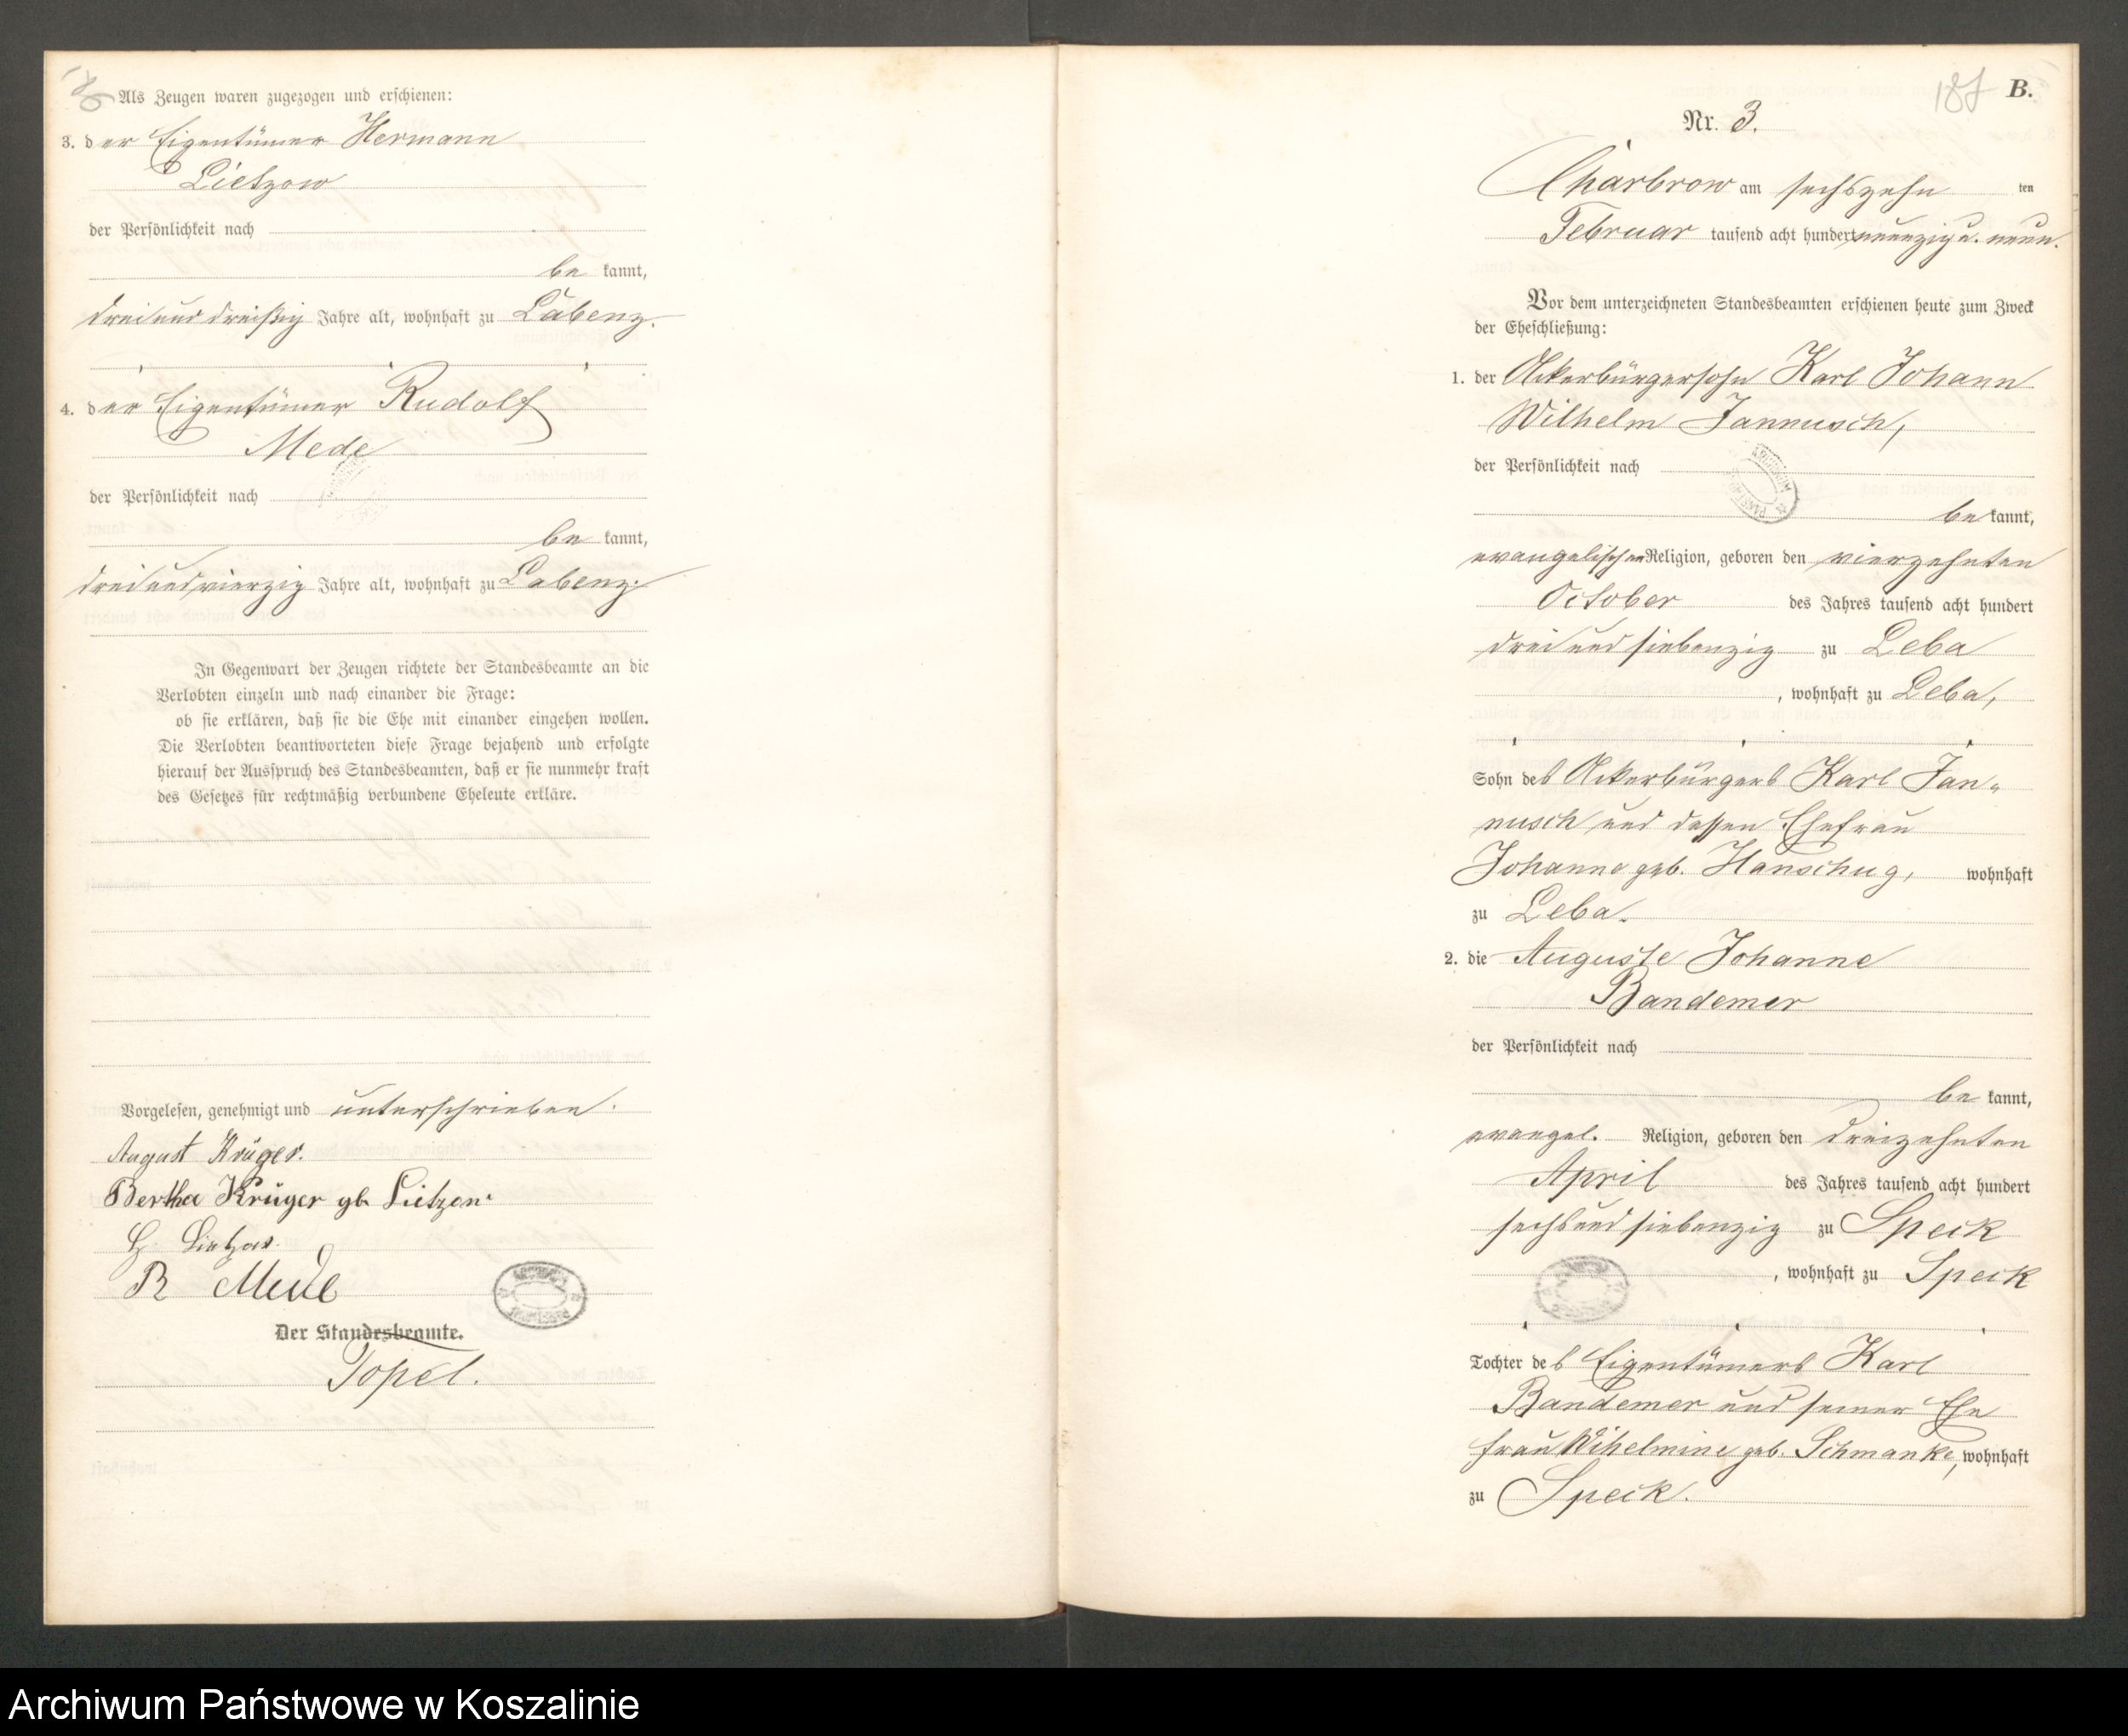 Als Zeugen waren zugezogen und erschienen:
3. der Eigentümer Hermann
Lietzow
der Persönlichkeit nach
be kannt,
drei und dreißig Jahre alt, wohnhaft zu Labenz.
4. der Eigentümer Rudolf
Mede
der Persönlichkeit nach
be kannt,
drei und vierzig Jahre alt, wohnhaft zu Labenz.
In Gegenwart der Zeugen richtete der Standesbeamte an die
Verlobten einzeln und nach einander die Frage:
ob sie erklären, daß sie die Ehe mit einander eingehen wollen.
Die Verlobten beantworteten diese Frage bejahend und erfolgte
hierauf der Ausspruch des Standesbeamten, daß er sie nunmehr kraft
des Gesetzes für rechtmäßig verbundene Eheleute erkläre.
Vorgelesen, genehmigt und unterschrieben.
August Krüger.
Bertha Krüger gb. Lietzow.
H. Lietzow.
R Mede
Der Standesbeamte.
Topel.
187 B.
Nr. 3.
Charbrow am sechszehn ten
Februar tausend acht hundert neunzig u. neun.
Vor dem unterzeichneten Standesbeamten erschienen heute zum Zweck
der Eheschließung:
1. der Ackerbürgersohn Karl Johann
Wilhelm Jannusch,
der Persönlichkeit nach
be kannt,
evangelischen Religion, geboren den vierzehnten
October des Jahres tausend acht hundert
drei und siebenzig zu Leba
, wohnhaft zu Leba,
Sohn des Ackerbürgers Karl Jan-
nusch und dessen Ehefrau
Johanne geb. Hanschug, wohnhaft
zu Leba.
2. die Auguste Johanne
Bandemer
der Persönlichkeit nach
be kannt,
evangel. Religion, geboren den dreizehnten
April des Jahres tausend acht hundert
sechs und siebenzig zu Speck
, wohnhaft zu Speck
Tochter des Eigentümers Karl
Bandemer und seiner Ehe
frau Wihelmine geb. Schmanke, wohnhaft
zu Speck.
Archiwum Państwowe w Koszalinie